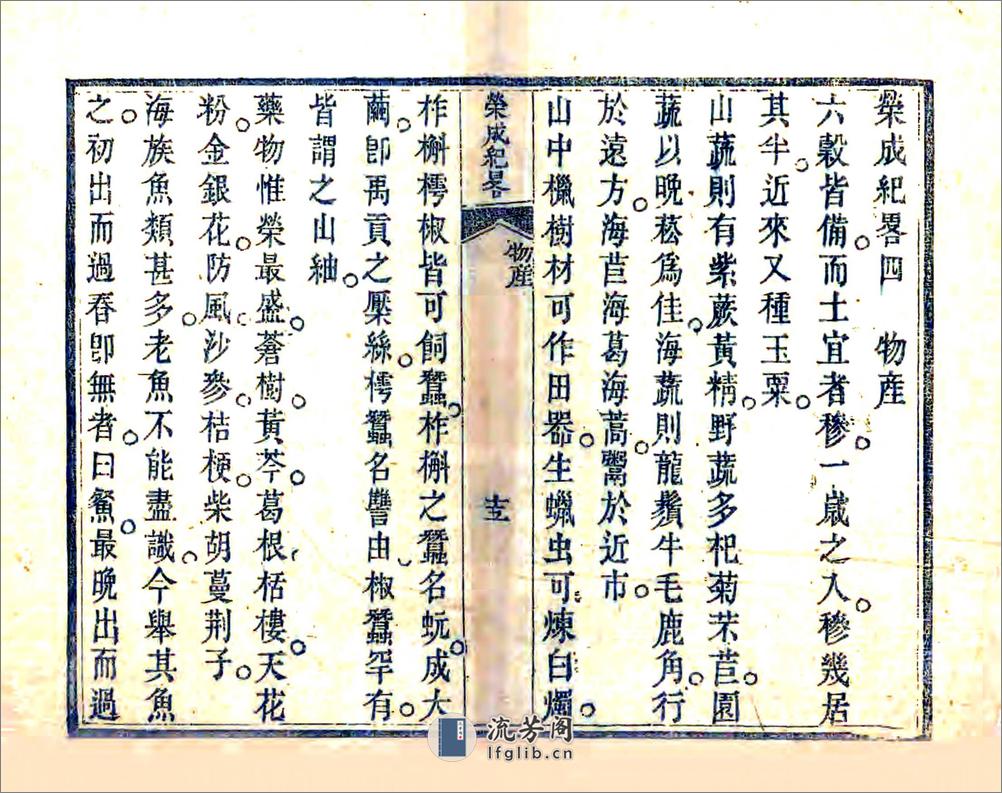 榮成紀畧四　物産
六穀皆備而土宜者穇一歳之入穇幾居
其半近來又種玉粟
山蔬則有紫蕨黃精野蔬多杞菊芣苢園
蔬以晚菘爲佳海蔬則龍鬚牛毛鹿角行
於遠方海苣海葛海蒿鬻於近市
山中檵樹材可作田器生蠟虫可煉白燭
榮成紀畧
物産
十五
柞槲樗椒皆可飼蠶柞槲之蠶名蚖成大
繭卽禹貢之檿絲樗蠶名讐由椒蠶罕有
皆謂之山紬
藥物惟榮最盛蒼樹黃芩葛根栝樓天花
粉金銀花防風沙參桔梗柴胡蔓荆子
海族魚類甚多老魚不能盡識今舉其魚
之初出而過春卽無者曰鮤最晚出而過
流芳閣
lfglib.cn